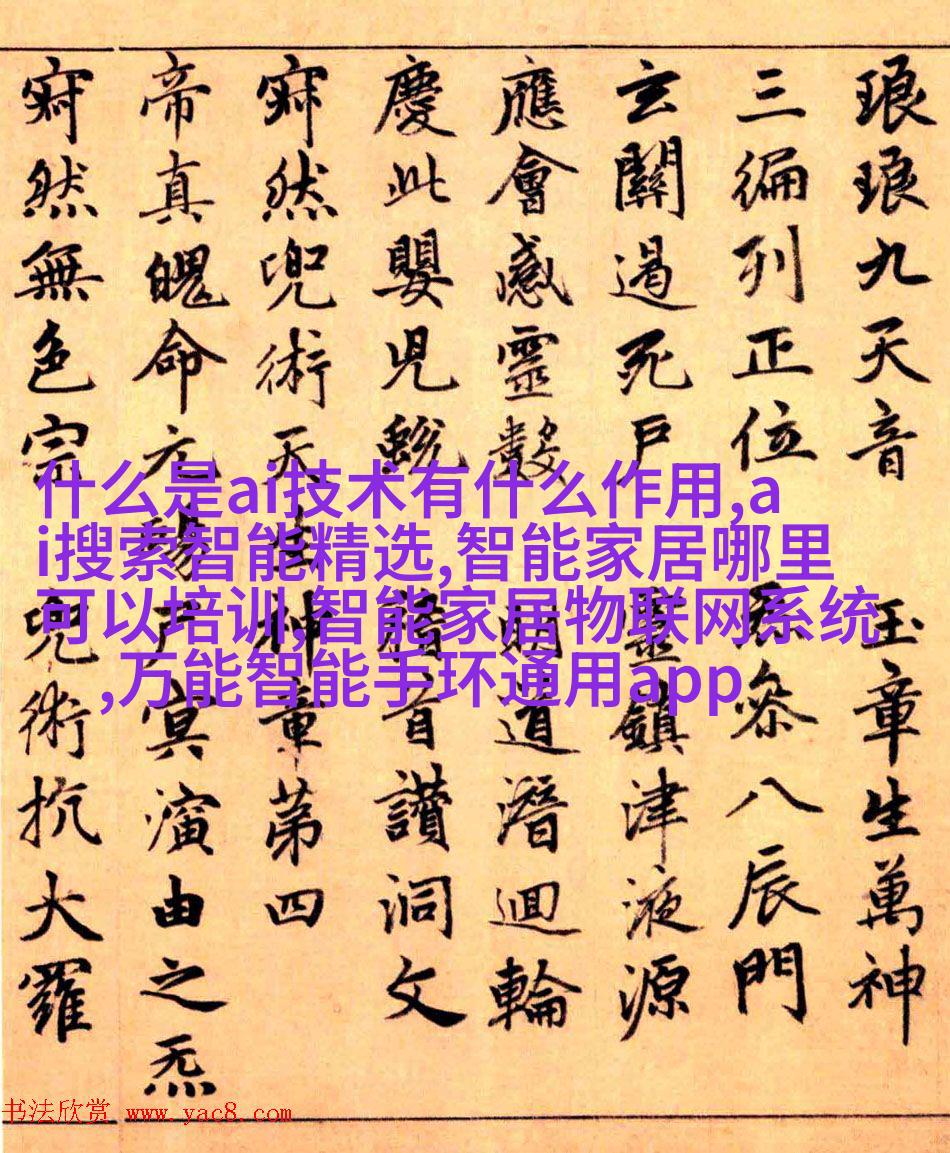 琅琅九天音 玉章生萬神
三徧列正位 叅八辰門
玄關遏死戸 靈鎮津液源
應會感靈數 明道潛迴輪
慶此嬰兒 首讃洞文
寂然兜術天生神章第四
帝真魄命元陽尸冥演由之炁
寂然無色宗 兜術抗大羅
什么是ai技术有什么作用,a
i搜索智能精选,智能家居哪里
可以培训,智能家居物联网系统
,万能智能手环通用app
书法欣赏 www.yac8.com